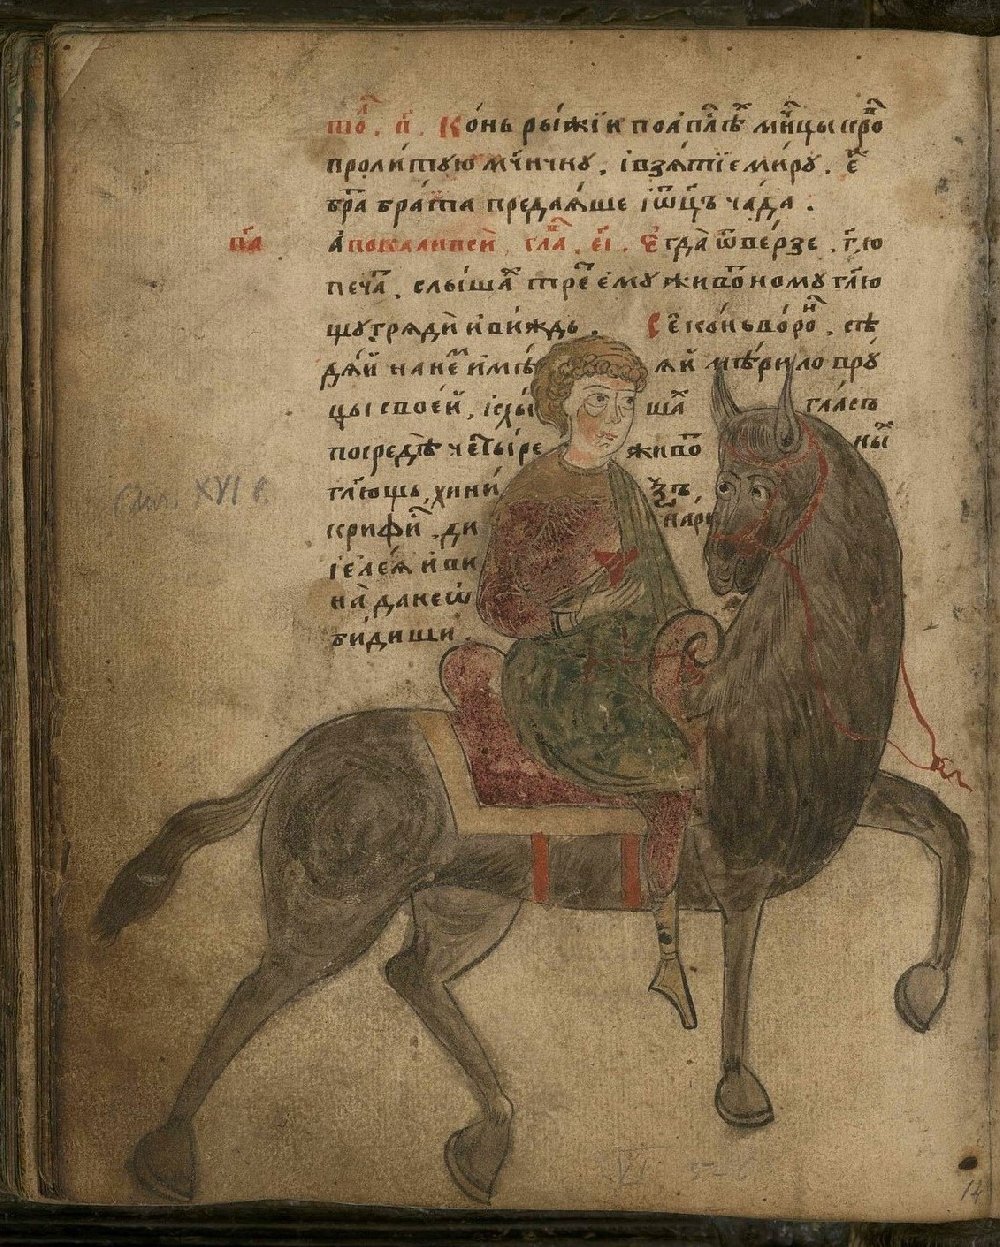 то̑л. п҃. Ко́нь ры́жїи поапл҃ѣ х мч҃нцы кро
проли́тую мч҃ичку. і взѧ́тїе ми́ру. е҆
бра бра́та предаѧ́ше і ѿц҃ъ ча́да.
гл҃а А҆покалипсей, гла҃. е҃і. Е҆гда̀ ѿве́рзе. г҃ю
печа. слы́ша тре е́му живо́ному гл҃ю
щу грѧди̏ и ви́ждь. Се́ ко́нь воро́. сѣ
дѧ́й на не имѣ ѧй мѣ́рило в ру́
цы свое́й, і слы ша гла́съ
посредѣ̀ четы́ре живо ны
гл҃ющь, хи́ни зъ
скрифи́. ди нарі
і еле́ѧ и ви
на̀ да не ѿ
би́диши.
XVI в.
14